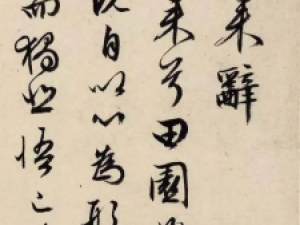 來辭
來兮田園
既自以心為形
而獨悲悟已